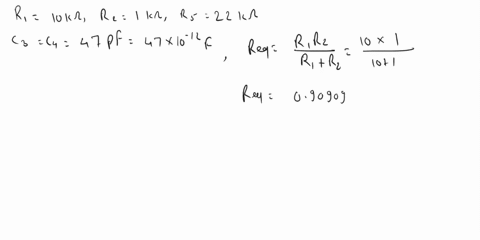 R₁ = 10 kΩ, R₂ = 1 kΩ, R₅ = 22 kΩ
C₃ = C₄ = 47 pF = 47 × 10⁻¹² F , Req = R₁R₂ / R₁ + R₂ = 10 × 1 / 10+1
Req = 0.90909